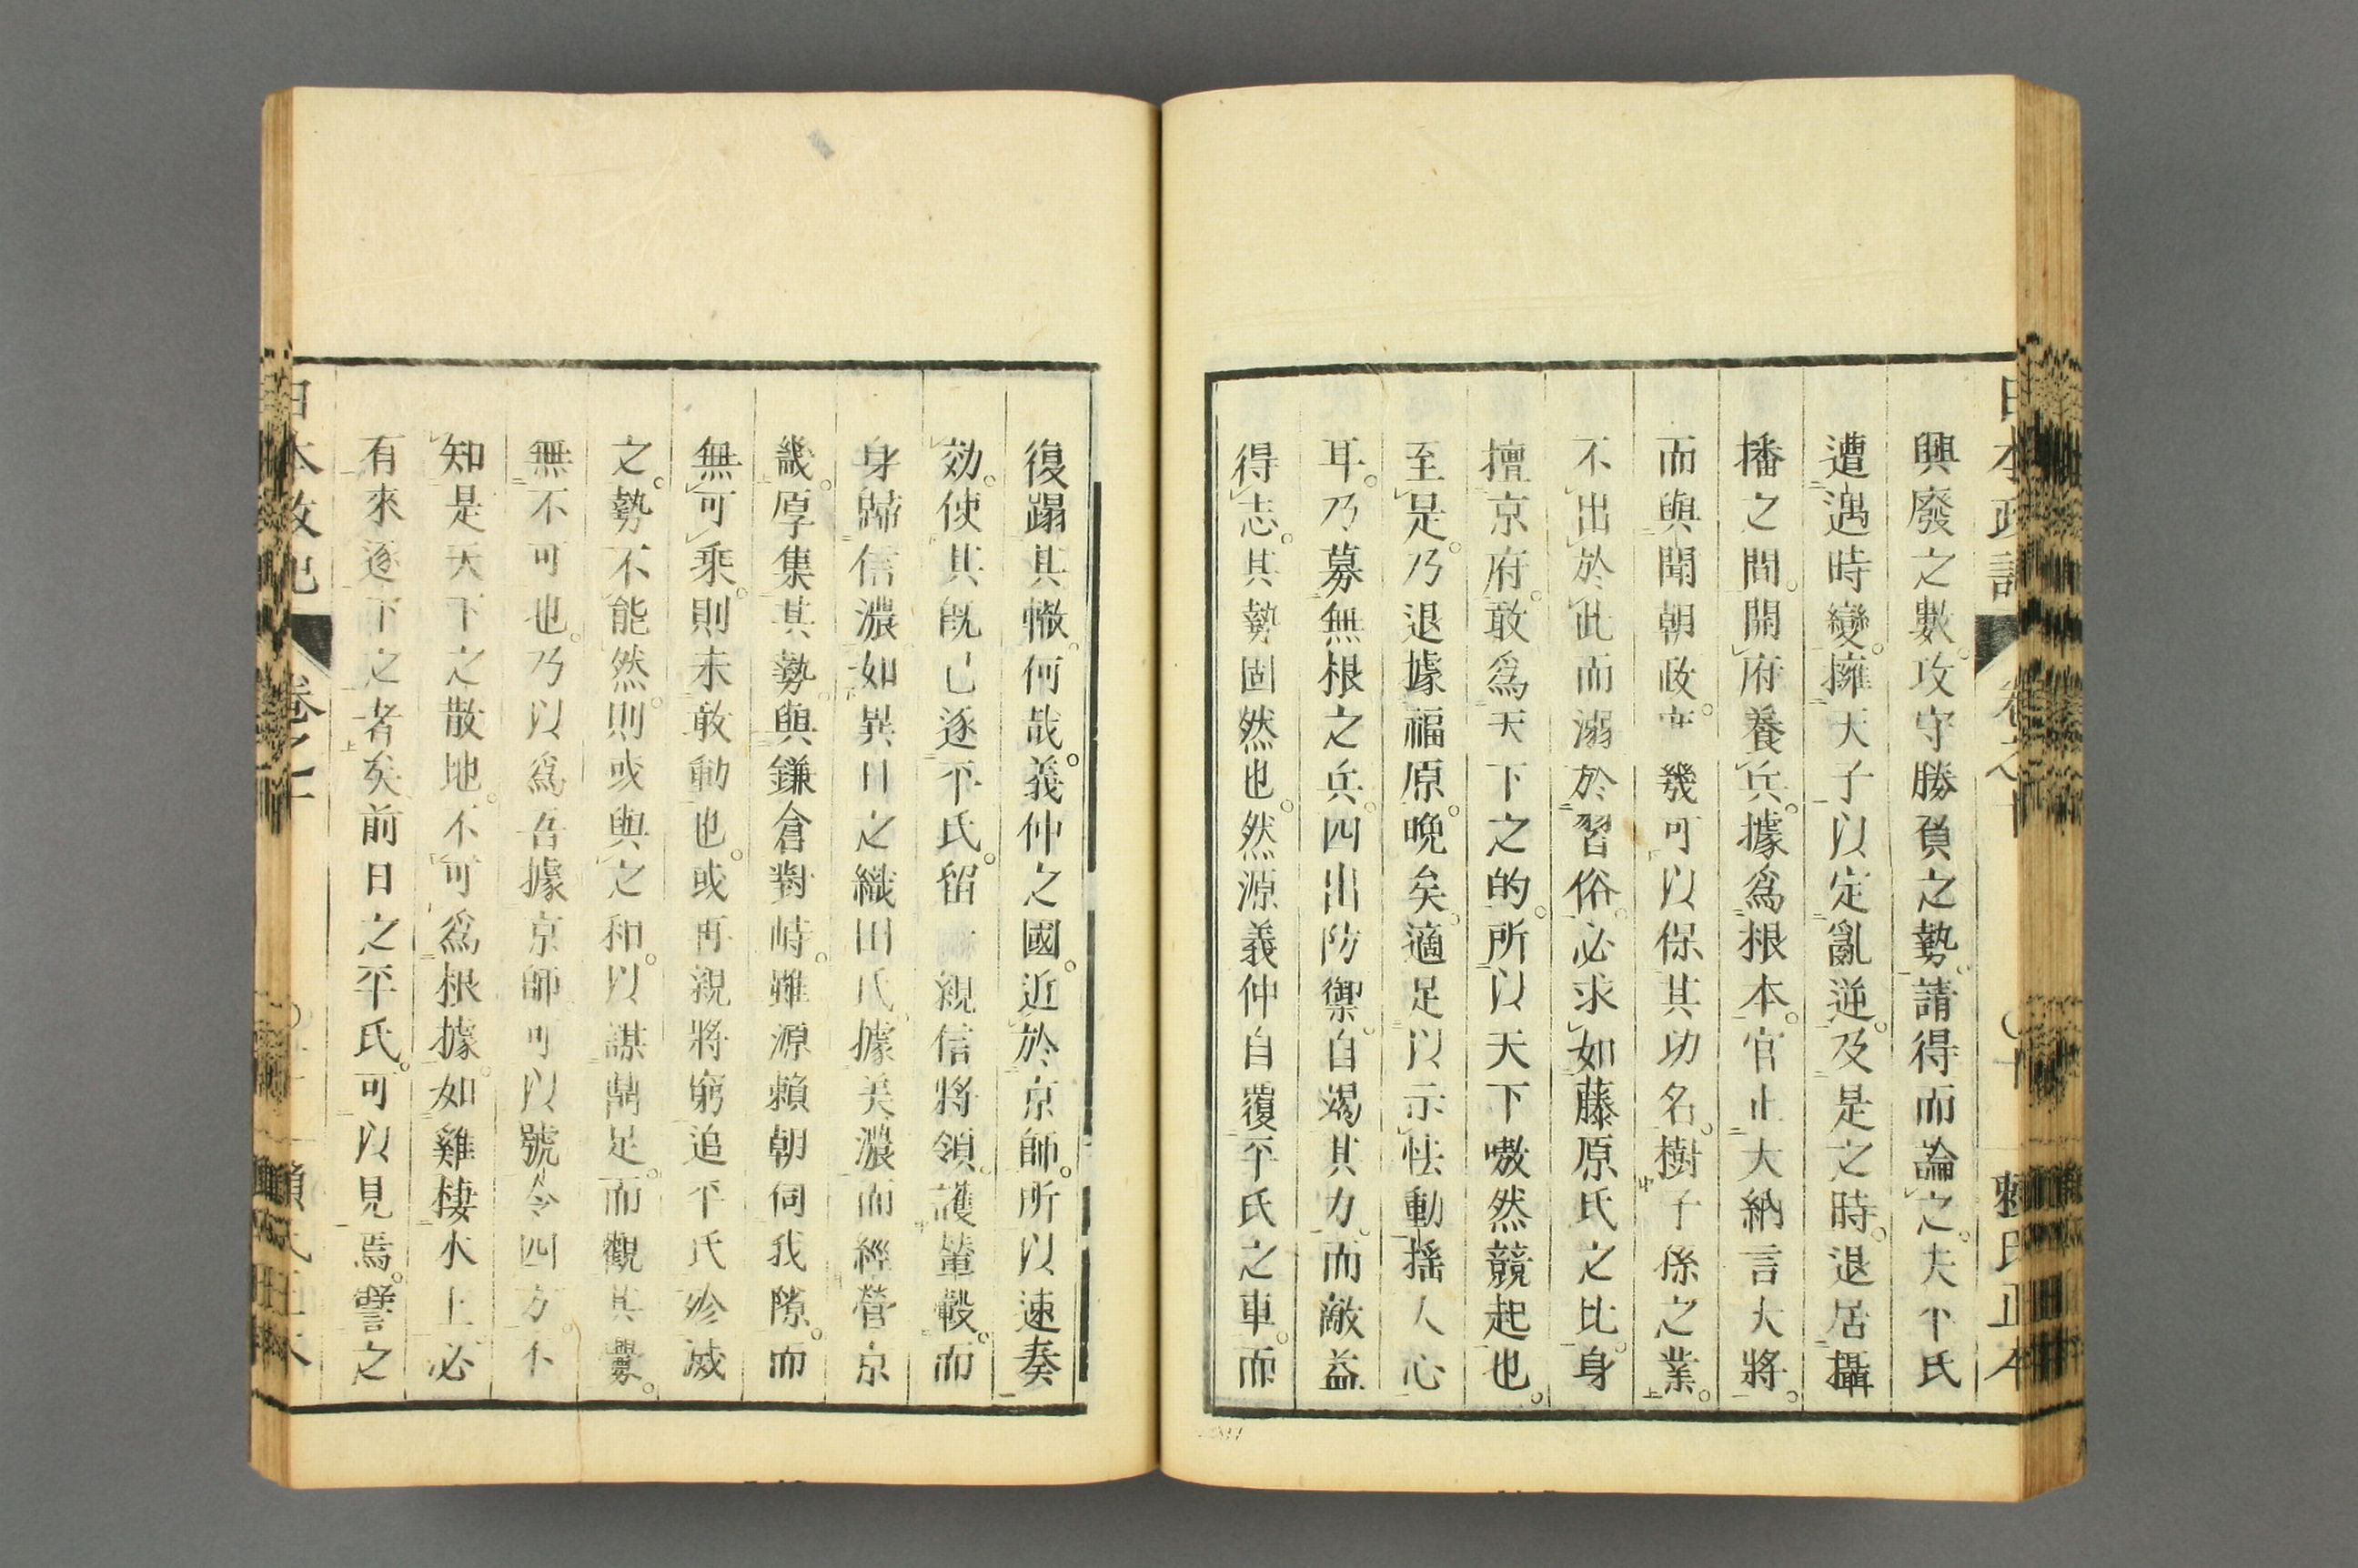 日本政記
卷之十
賴氏正本
興廢之數攻守勝負之勢請得而論之夫平氏
遭遇時變擁天子以定亂逆及是之時退居攝
播之間開府養兵據爲根本官止大納言大將
而與聞朝政庶幾可以保其功名樹子孫之業
不出於此而溺於習俗必求如藤原氏之比身
擅京府敢爲天下之的所以天下嗷然競起也
至是乃退據福原晩矣適足以示怯動搖人心
耳乃募無根之兵四出防禦自竭其力而敵益
得志其勢固然也然源義仲自覆平氏之車而
復蹋其轍何哉義仲之國近於京師所以速奏
効使其既已逐平氏留親信將領護輦轂而
身歸信濃如異日之織田氏據美濃而經營京
畿厚集其勢與鎌倉對峙雖源賴朝伺我隙而
無可乘則未敢動也或再親將窮追平氏殄滅
之勢不能然則或與之和以謀鼎足而觀其釁
無不可也乃以爲吾據京師可以號令四方不
知是天下之散地不可爲根據如雞棲木上必
有來逐下之者矣前日之平氏可以見焉譬之
日本政記
卷之十
賴氏正本